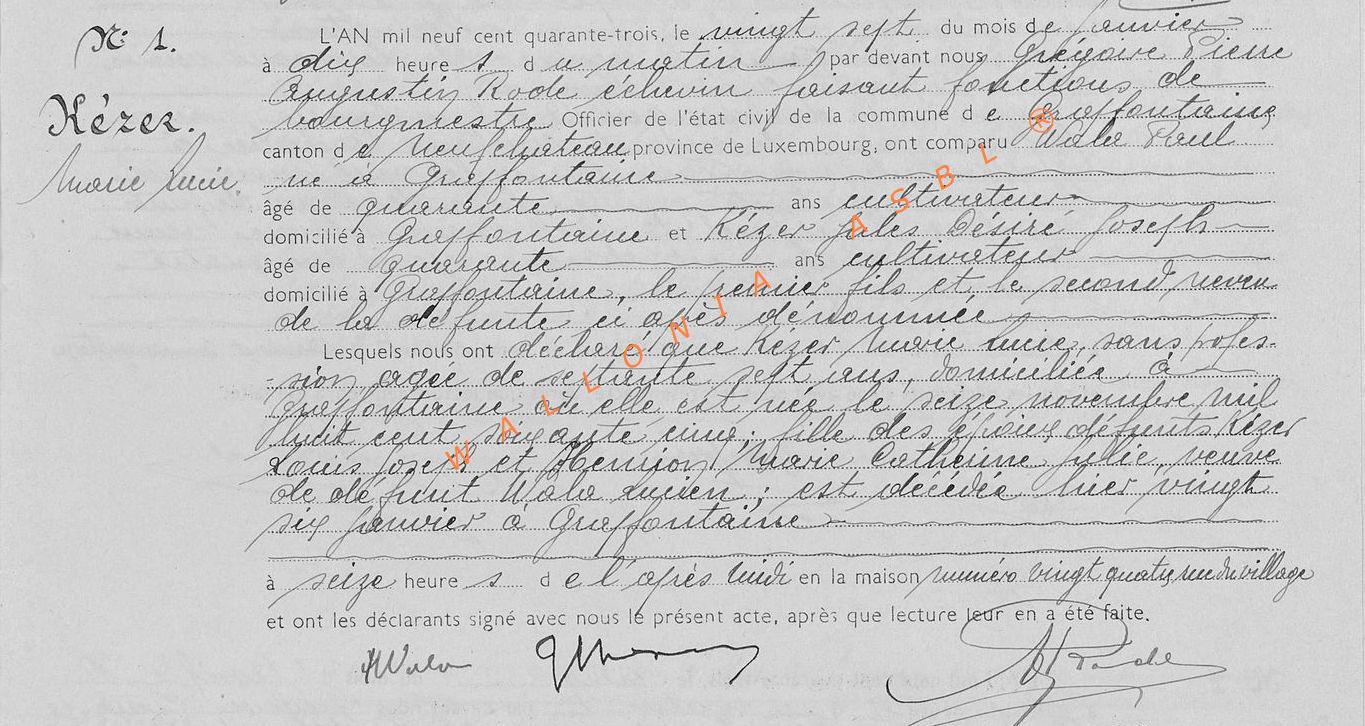 N° 1.
Kézer.
Marie Lucie.
L'AN mil neuf cent quarante-trois, le vingt sept du mois de janvier
à dix heure s du matin par devant nous Grégoire Pierre
Augustin Rode échevin faisant fonctions de
bourgmestre Officier de l'état civil de la commune d e Graffontaine
canton d e Neufchâteau province de Luxembourg, ont comparu Wala Paul
né à Graffontaine
âgé de quarante ans cultivateur
domicilié à Graffontaine et Kézer Jules Désiré Joseph
âgé de quarante ans cultivateur
domicilié à Graffontaine, le premier fils et le second neveu
de la défunte ci après dénommée
Lesquels nous ont déclaré que Kézer Marie Lucie, sans profes-
-sion agée de septante sept ans, domiciliée à
Graffontaine où elle est née le seize novembre mil
huit cent soixante cinq; fille des époux défunts Kézer
Louis Joseph et Marie Catherine Julie, veuve
de défunt Wala Lucien; est décédée hier vingt
six janvier à Graffontaine
à seize heure s d e l'après midi en la maison numéro vingt quatre rue du village
et ont les déclarants signé avec nous le présent acte, après que lecture leur en a été faite.
Wala
Rode
WALLONIA ASBL ®